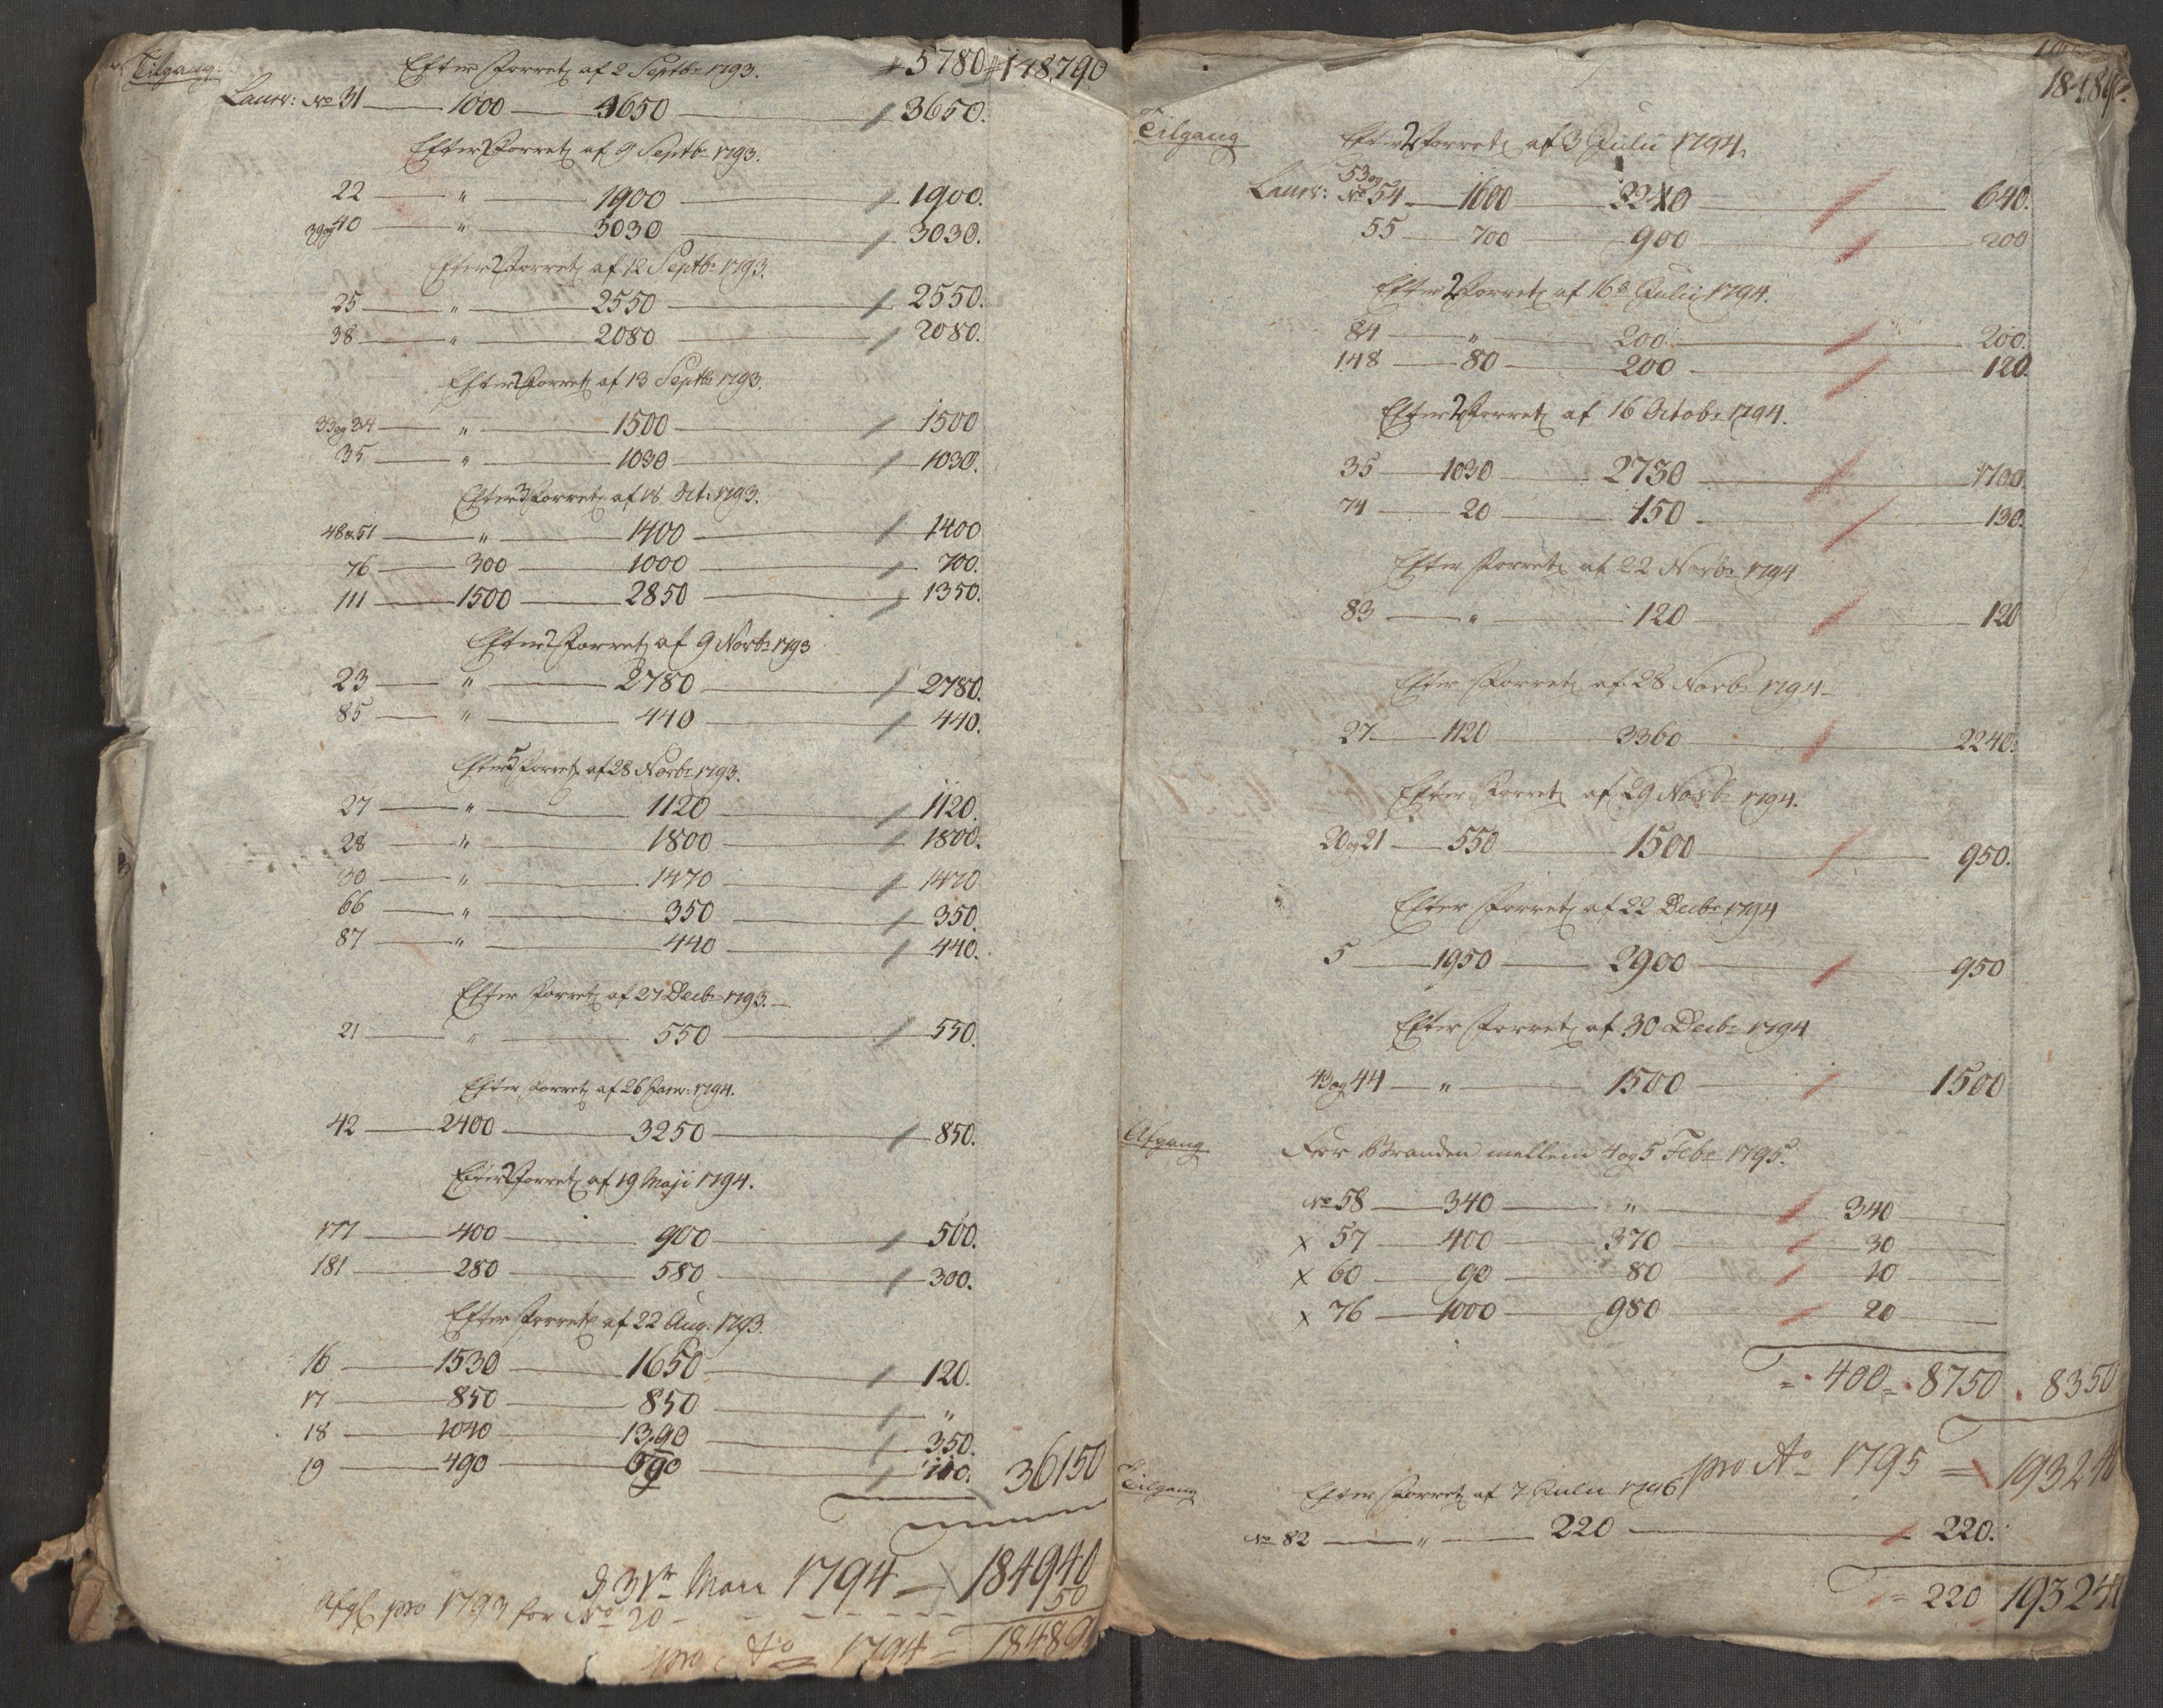 Tilgang Efter Forretn af 2 Septbr 1793. 5780 148790
Laurv: No 31 1000 4650 3650.
Efter 2 Forretn af 9 Septbr 1793.
22 " 1900 1900.
39 og 40 " 3030 3030.
Efter 2 Forretn af 12 Septbr 1793.
25 " 2550 2550.
38 " 2080 2080.
Efter 2 Forretn af 13 Septbr 1793.
33 og 34 " 1500 1500
35 " 1030 1030.
Efter 3 Forretn af 18 Oct: 1793.
48 & 51 " 1400 1400
76 300 1000 700.
111 1500 2850 1350.
Efter 2 Forretn af 9 Novbr 1793
23 " 2780 2780.
85 " 440 440.
Efter 5 Forretn af 28 Novbr 1793.
27 " 1120 1120.
28 " 1800 1800.
30 " 1470 1470
66 " 350 350.
87 " 440 440.
Efter Forretn af 27 Decbr 1793.
21 " 550 550.
Efter Forretn af 26 Janv: 1794.
42 2400 3250 850.
Efter 2 Forretn af 19 Maji 1794.
177 400 900 500.
181 280 580 300.
Efter Forretn af 22 Aug: 1793.
16 1530 1650 120.
17 850 850 "
18 1040 1390 350.
19 490 690 36150
d 31te Mars 1794 184940
Afgl pro 1793 for No 20 50
pro Ao 1794 = 18489
Tilgang Efter 2 Forretn af 3 Julii 1794.
Laurv: 53 og No 54 1600 2240 640.
55 700 900 200
Efter 2 Forretn af 16d Julii 1794.
84 " 200 200.
148 80 200 120.
Efter 2 Forretn af 16 Octobr 1794.
35 1030 2730 1700
74 20 150 130.
Efter Forretn af 22 Novbr 1794
83 " 120 120
Efter Forretn af 28 Novbr 1794
27 1120 3360 2240.
Efter Forretn af 29 Novbr 1794.
20 og 21 550 1500 950.
Efter Forretn af 22 Decbr 1794
5 1950 2900 950
Efter Forretn af 30 Decbr 1794
43 og 44 " 1500 1500
Afgang For Branden mellem 4 og 5 Febr 1795.
No 58 340 " 340
x 57 400 370 30
x 60 90 80 10
x 76 1000 980 20
= 400 = 8750 8350
pro Ao 1795 = 193240
Tilgang Efter Forretn af 7 Julii 1796
No 82 " 220 220.
= 220 193240